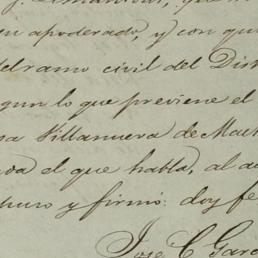 un apoderado, y con qu
el ramo civil del Dis
gun lo que previene el
sa Villanueva de Mac
da el que habla, al a
y firmó: doy fe
Jose C. Garc